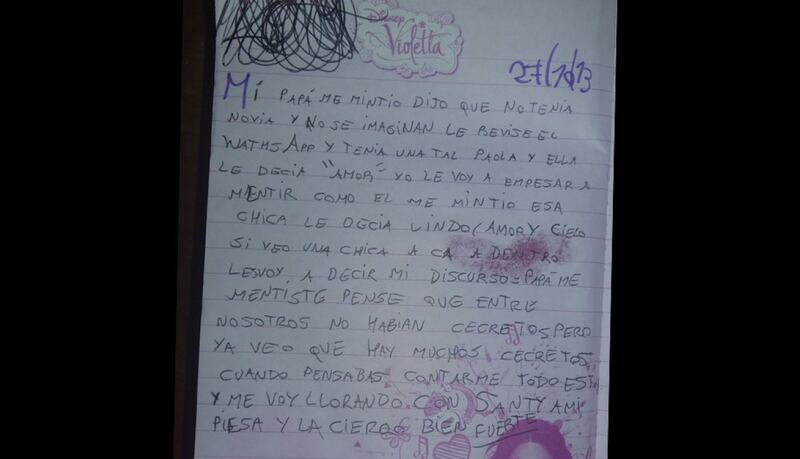 Disney
Violetta
27/10/13
Mi PAPÁ ME MINTIO DIJO QUE NO TENIA
NOVIA Y NO SE IMAGINAN LE REVISE EL
WATHSAPP Y TENIA UNA TAL PAOLA Y ELLA
LE DECIA "AMOR" YO LE VOY A EMPESAR A
MENTIR COMO EL ME MINTIO ESA
CHICA LE DECIA LINDO(AMOR Y CIELO
SI VEO UNA CHICA A CA A DENTRO
LESVOY A DECIR MI DISCURSO=PAPÁ ME
MENTISTE PENSE QUE ENTRE
NOSOTROS NO HABIAN CECRETOS PERO
YA VEO QUE HAY MUCHOS CECRETOS
CUANDO PENSABAS CONTARME TODO ESTO
Y ME VOY LLORANDO CON SANTY A MI
PIESA Y LA CIERRO BIEN FUERTE